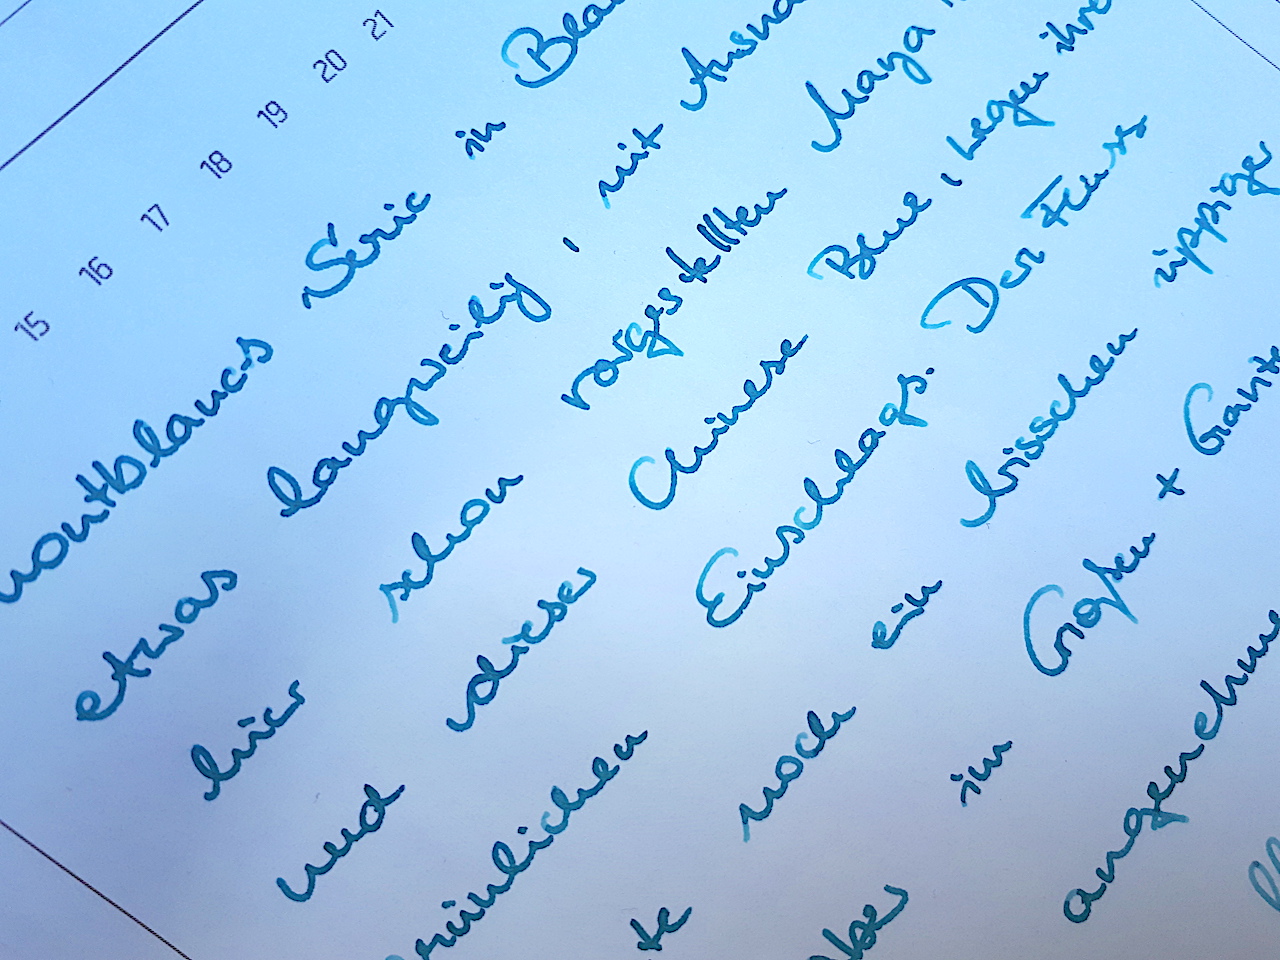 15 16 17 18 19 20 21
montblancs Serie in Blau
etwas langweilig, mit Ausna
hier schon vorgestellten Maya
und dieser Chinese Blue, wegen ihre
grünlichen Einschlags. Der Fluss
te noch ein bisschen üppiger
aber im Großen + Ganze
angenehm